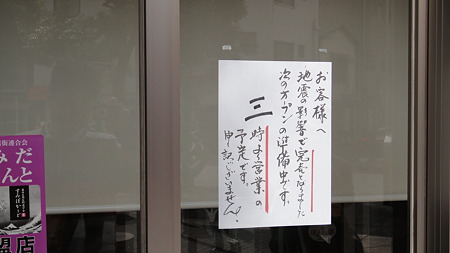 お客様へ
地震の影響で完売となりました
次のオープンの準備中です。
三時より営業の
予定です。
申訳ございません。
街連合会
みだ
んと
すんぽかーど
盟店